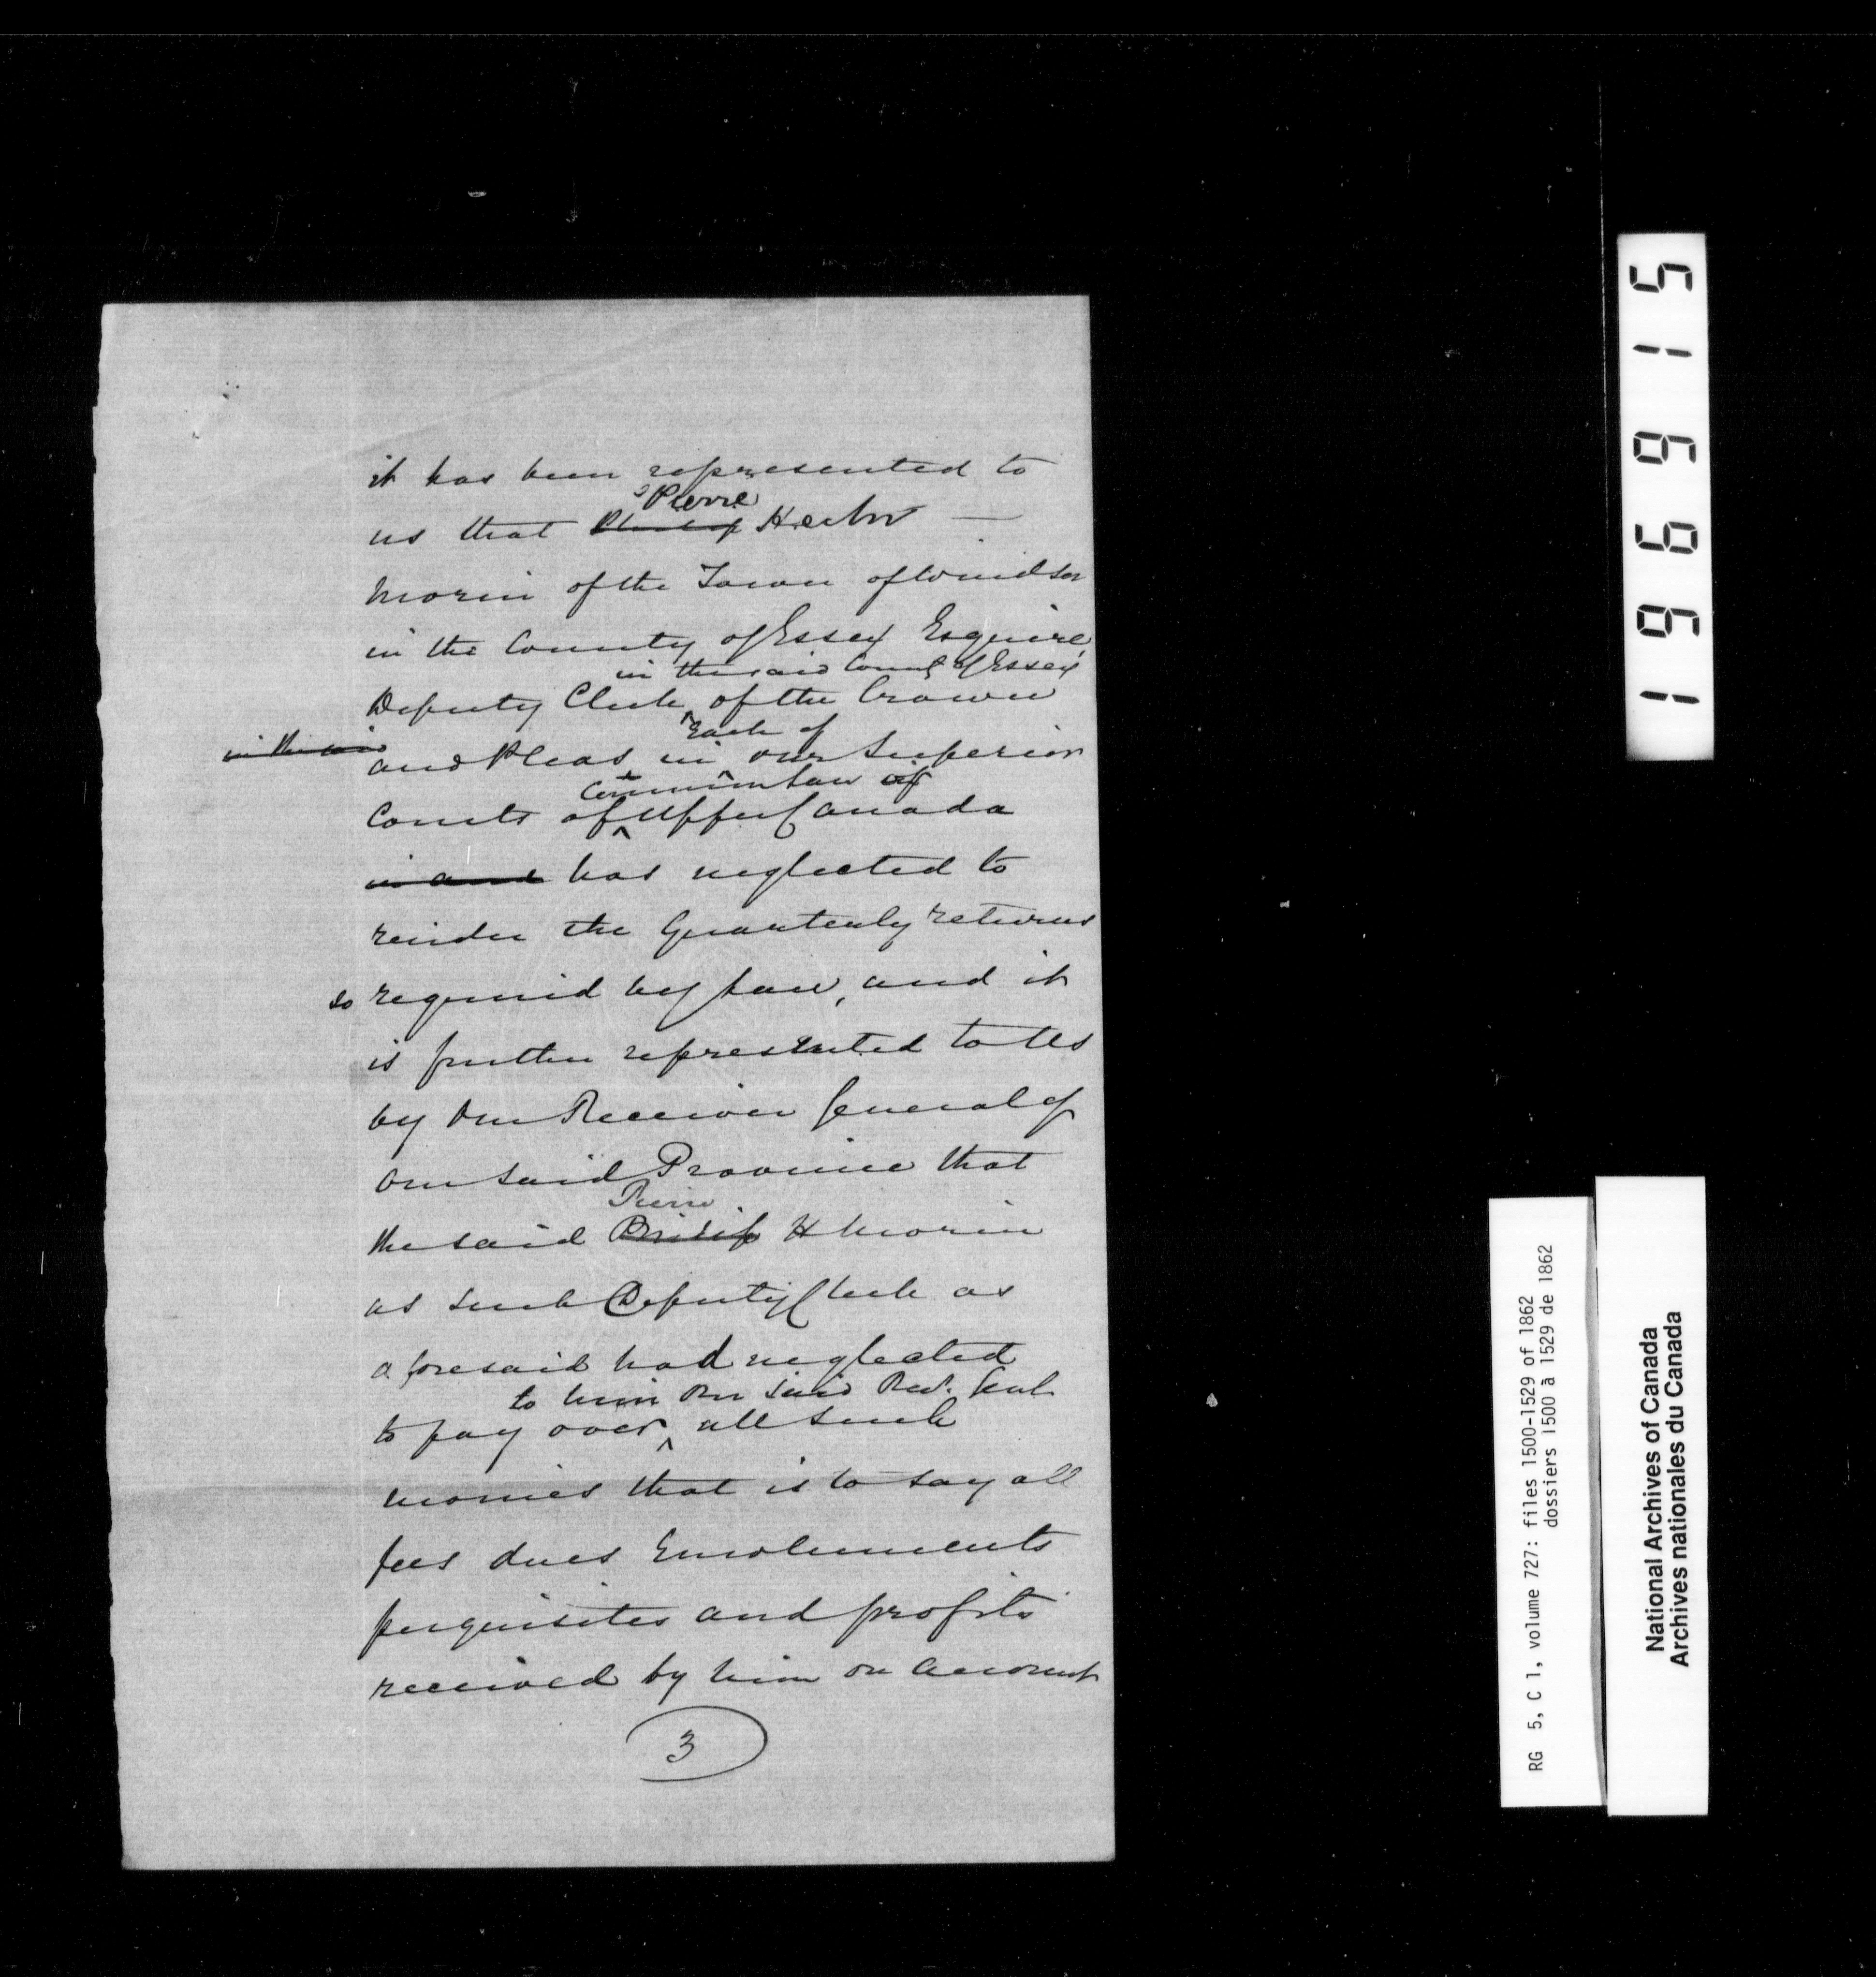 it has been represented to
Pierre
us that Philip Hector —
Morin of the Town of Windsor
in the County of Essex Esquire,
in the said County of Essex
Deputy Clerk of the Crown
Each of
in the said
and Pleas in our Superior
Common Law of
Courts of Upper Canada
in and has neglected to
render the Quarterly returns
so required by law, and it
is further represented to Us
by Our Receiver General of
Our said Province that
Pierre
the said H Morin
as such Deputy Clerk as
aforesaid had neglected
to him Our said Recr. Genl
to pay over all such
monies that is to say all
fees dues Emoluments
perquisites and profits
received by him on account
3
196915
RG 5, C 1, volume 727: files 1500-1529 of 1862
dossiers 1500 à 1529 de 1862
National Archives of Canada
Archives nationales du Canada